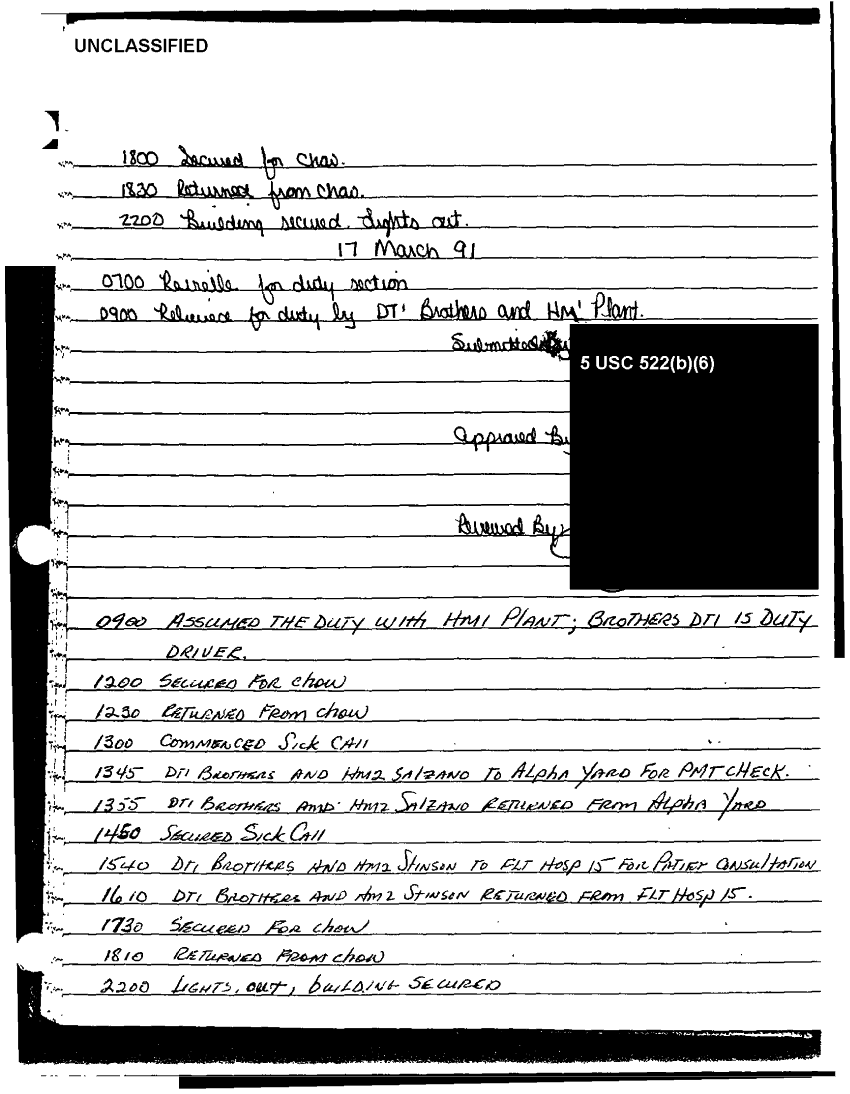 UNCLASSIFIED
1800 Secured for chow.
1830 Returned from chow.
2200 Building secured. Lights out.
17 March 91
0700 Reveille for duty section
0900 Relieved for duty by DT1 Brothers and HM1 Plant.
Submitted By
5 USC 522(b)(6)
Approved By
Reviewed By
0900 ASSUMED THE DUTY WITH HM1 PLANT; BROTHERS DT1 IS DUTY
DRIVER.
1200 SECURED FOR CHOW
1230 RETURNED FROM CHOW
1300 COMMENCED SICK CALL
1345 DT1 BROTHERS AND HM2 SALZANO TO ALPHA YARD FOR PMT CHECK.
1355 DT1 BROTHERS AND HM2 SALZANO RETURNED FROM ALPHA YARD
1450 SECURED SICK CALL
1540 DT1 BROTHERS AND HM2 STINSON TO FLT HOSP 15 FOR PATIET CONSULTATION
1610 DT1 BROTHERS AND HM2 STINSON RETURNED FROM FLT HOSP 15.
1730 SECURED FOR CHOW
1810 RETURNED FROM CHOW
2200 LIGHTS, OUT, BUILDING SECURED